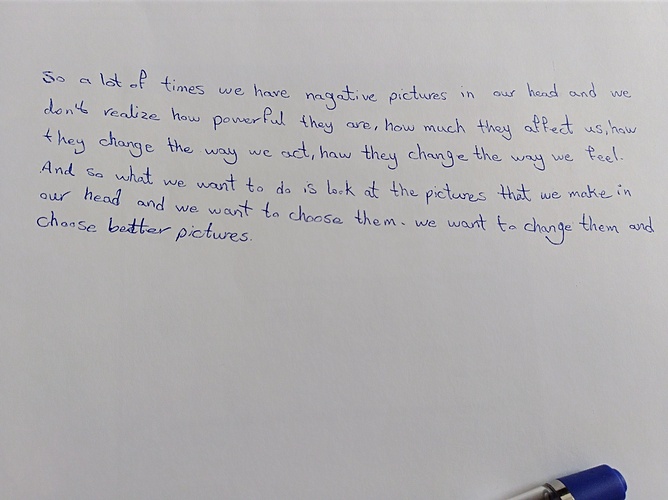 So a lot of times we have nagative pictures in our head and we
don't realize how powerful they are, how much they affect us, how
they change the way we act, haw they change the way we feel.
And so what we want to do is look at the pictures that we make in
our head and we want to choose them. we want to change them and
choose better pictures.